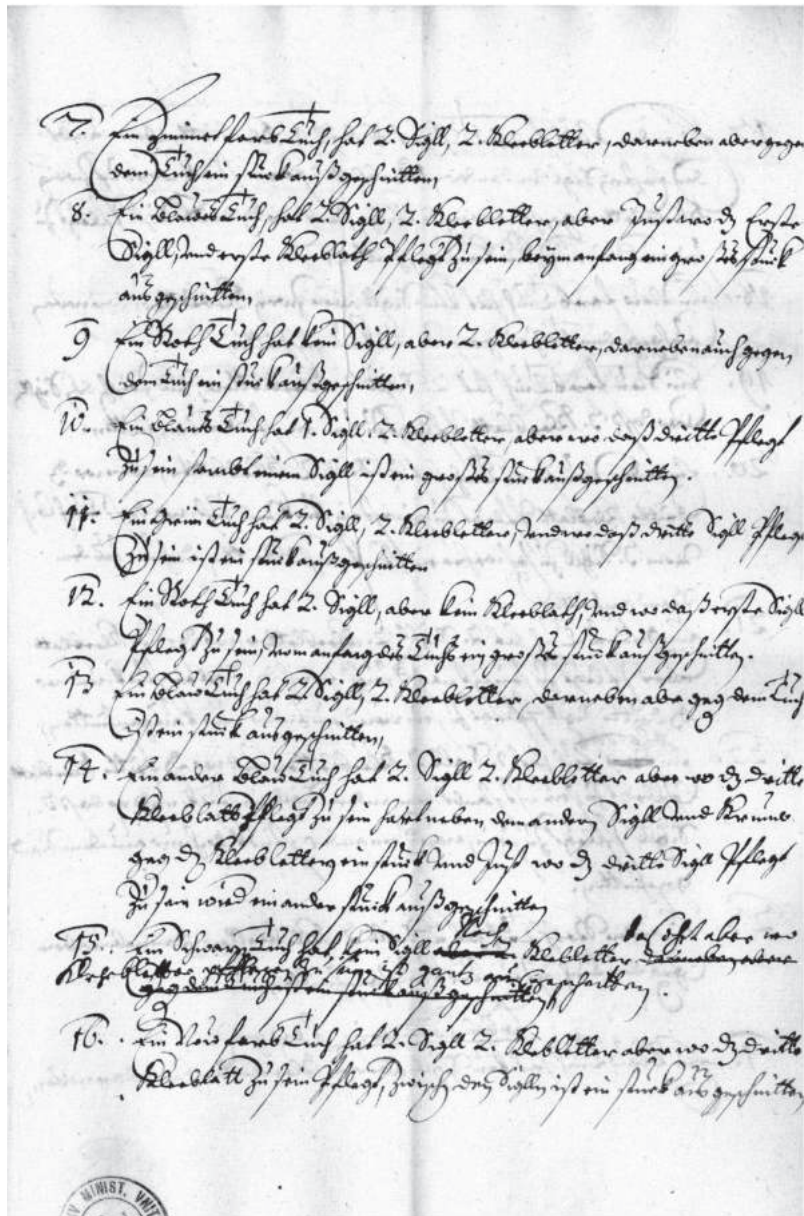 7. Ein Zimmetfarb Tuch, hat 2. Sigll, 2. Kleebletter, darneben aber gege
dem Tuch ein stuck außgeschnitten,
8. Ein Blawes Tuch, hat 2. Sigll, 2. Kleebletter, aber Just wo dz Erste
Sigll, und erste Kleeblath Pflegt zu sein, beym anfang ein großes stuck
ausgeschnitten,
9 Ein Roth Tuch hat kein Sigll, aber 2. Kleebletter, darneben auch gegen
dem Tuch ein stuck außgeschnitten,
10. Ein Blaues Tuch hat 1. Sigll. 2. Kleebletter aber wo daß dritte Pflegt
zu sein sambt einem Sigll ist ein großes stuck außgeschnitten.
11. Ein Grün Tuch hat 2. Sigll, 2. Kleebletter, und wo daß dritte Sigll Pflegt
zu sein ist ein stuck außgeschnitten
12. Ein Roth Tuch hat 2. Sigll, aber kein Kleeblath, und wo daß erste Sigll
Pflegt zu sein, vom anfang des Tuchs ein großes stuck außgeschnitten.
13 Ein Blaw Tuch hat 2 Sigll, 2. Kleebletter, darneben aber geg dem Tuch
ist ein stuck ausgeschnitten,
14. Ein ander Blaw Tuch hat 2. Sigll 2. Kleebletter aber wo dz dritte
Kleeblatt Pflegt zu sein hat neben dem andern Sigll und
geg den Kleebletter ein stuck und Just wo dz dritte Sigll Pflegt
zu sein wird ein ander stuck außgeschnitten
15. Ein Schwarz Tuch hat kein Sigll noch Kleebletter aber wo
Kleebletter pflegen zu sein ist gantz ausgeschnitten.
geg dem Tuch ist ein stuck außgeschnitten,
16. Ein farb Tuch hat 2. Sigll 2. Klebletter aber wo dz dritte
Kleeblatt zu sein Pflegt, zwisch den Siglln ist ein stuck aus geschnitten
MINIST. VNIT